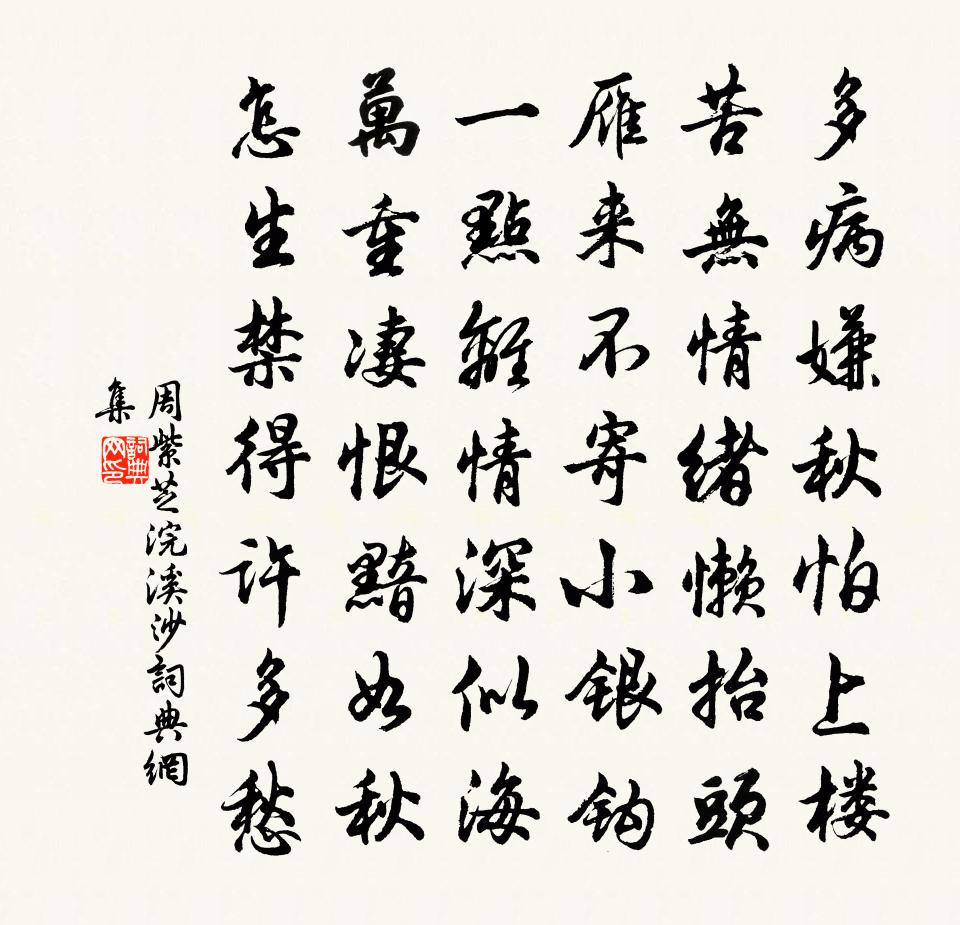 多病嫌秋怕上楼
苦無情緒懶抬頭
雁来不寄小銀鈎
一點離情深似海
萬重凄恨黯如秋
怎生禁得許多愁
周紫芝浣溪沙詞典網
集
詞典網印